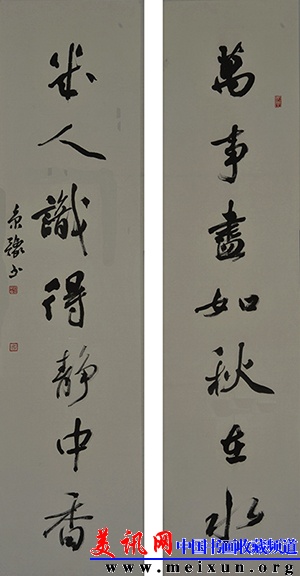 萬事盡如秋在水
幾人識得靜中香
豫书
美讯网 中国书画收藏频道
www.meixun.org